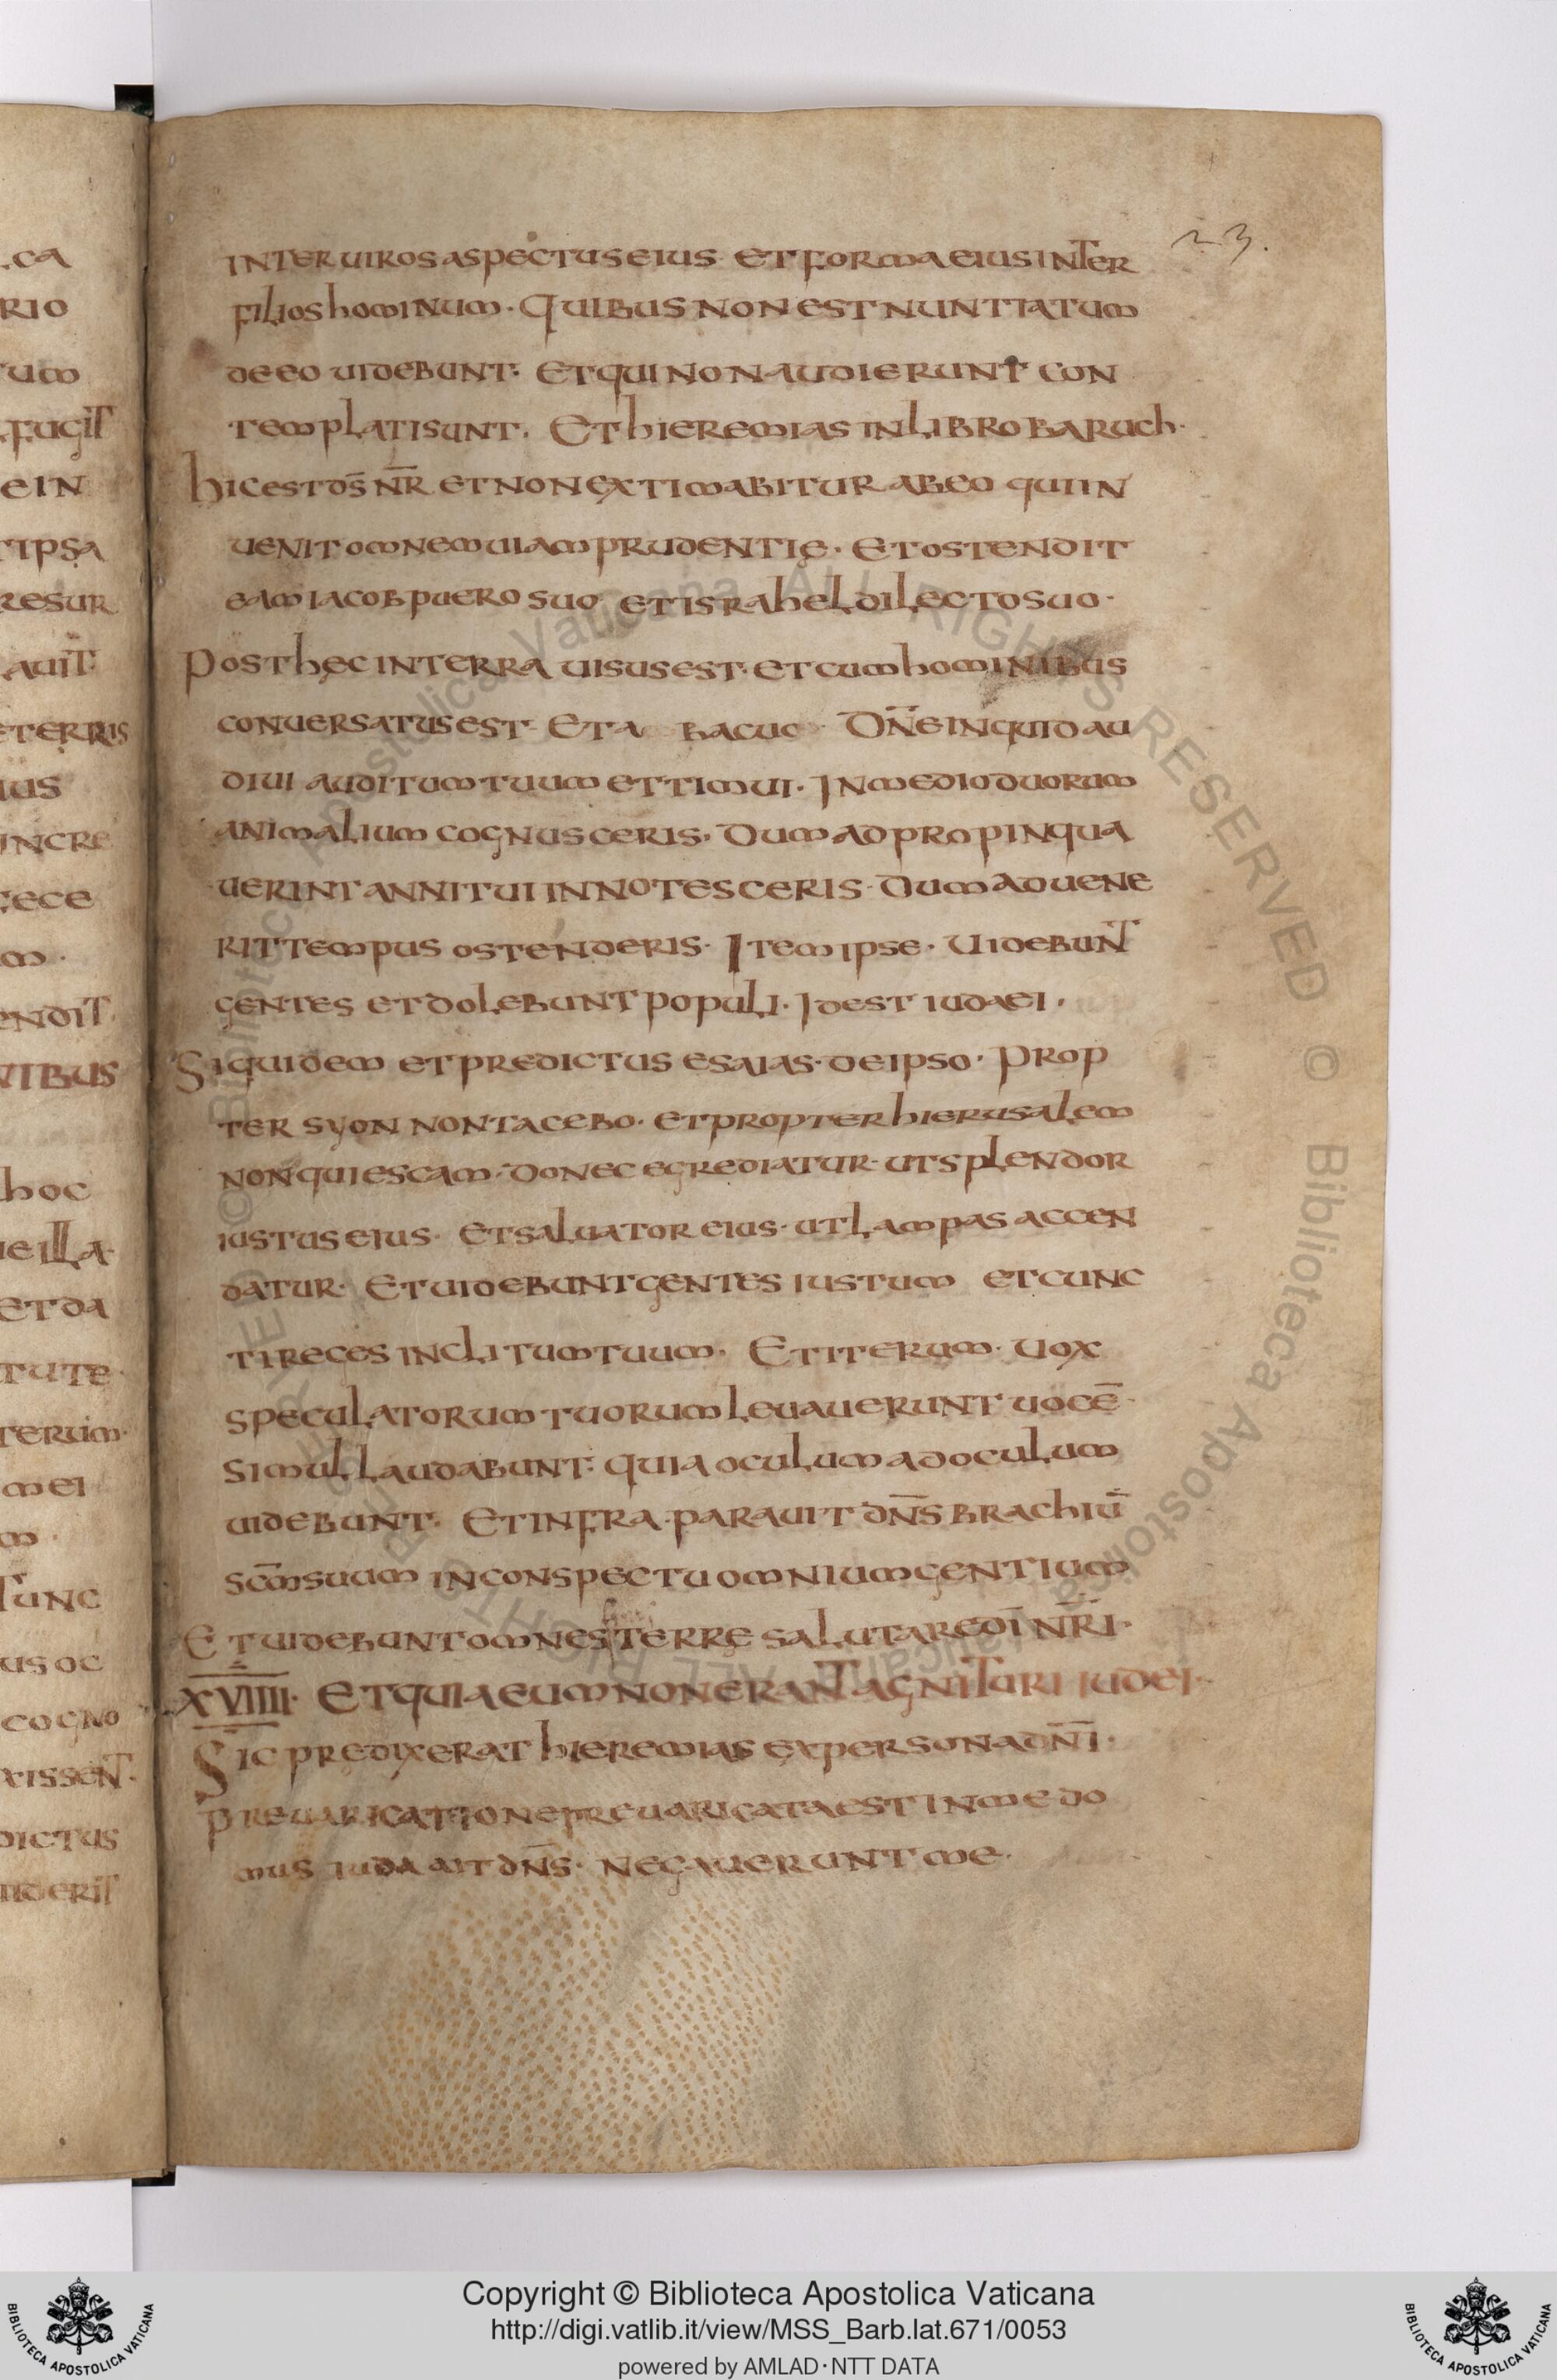 23.
inter uiros aspectus eius et forma eius inter
filios hominum · Quibus non est nuntiatum
de eo uidebunt · Et qui non audierunt con
templati sunt · Et hieremias in libro baruch ·
hic est ds̄ nr̄ et non extimabitur ab eo qui in
uenit omnem uiam prudentię · Et ostendit
eam iacob puero suo et israhel dilecto suo ·
Post hęc in terra uisus est · et cum hominibus
conuersatus est · Et a bacuc · Dn̄e inquid au
diui auditum tuum et timui · In medio duorum
animalium cognusceris · Dum adpropinqua
uerint anni tui innotesceris · Dum aduene
rit tempus ostenderis · Item ipse · Uidebunt
gentes et dolebunt populi · Id est iudaei ·
Siquidem et predictus esaias · de ipso · Prop
ter syon non tacebo · et propter hierusalem
non quiescam · Donec egrediatur · ut splendor
iustus eius · Et saluator eius · ut lampas accen
datur · Et uidebunt gentes iustum et cunc
ti reges inclitum tuum · Et iterum · Uox
speculatorum tuorum leuauerunt uocē ·
simul laudabunt · quia oculum ad oculum
uidebunt · Et infra · parauit dn̄s brachiū
sc̄m suum in conspectu omnium gentium
fini
Et uidebunt omnes terrę salutare dī nr̄i ·
XVIIII · Et quia eum non erant agnituri iudei ·
Sic predixerat hieremias ex persona dn̄i ·
Preuaricatione preuaricata est in me do
mus iuda ait dn̄s · negauerunt me ·
ca
rio
um
fugit
e in
ipsa
resur
auit
terris
ius
incre
fece
m ·
endit
nibus
hoc
e illa ·
et da
tute ·
terum ·
mei
m ·
tunc
us oc
cogno
xissent ·
dictus
uiderit
© Biblioteca Apostolica Vaticana ALL RIGHTS RESERVED © Biblioteca Apostolica Vaticana ALL RIGHTS RESERVED
BIBLIOTECA APOSTOLICA VATICANA
Copyright © Biblioteca Apostolica Vaticana
http://digi.vatlib.it/view/MSS_Barb.lat.671/0053
powered by AMLAD·NTT DATA
BIBLIOTECA APOSTOLICA VATICANA